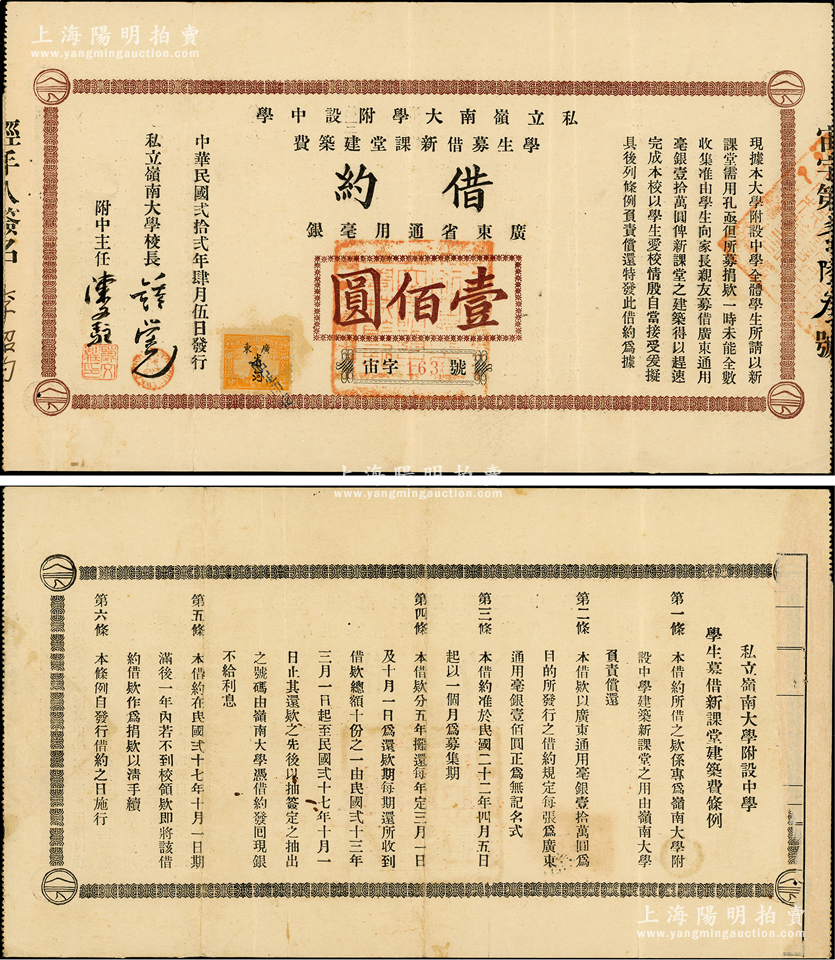 上海陽明拍賣
www.yangmingauction.com
私立嶺南大學附設中學
學生募借新課堂建築費
借約
廣東省通用毫銀
壹佰圓
宙字163號
廣東
現據本大學附設中學全體學生所請以新
課堂需用孔亟但所募捐欵一時未能全數
收集准由學生向家長親友募借廣東通用
毫銀壹拾萬圓俾新課堂之建築得以趕速
完成本校以學生愛校情殷自當接受爰擬
具後列條例負責償還特發此借約爲據
中華民國弍拾弍年肆月伍日發行
私立嶺南大學校長 鍾榮光
附中主任
經手人簽名
上海陽明拍賣
www.yangmingauction.com
私立嶺南大學附設中學
學生募借新課堂建築費條例
第一條 本借約所借之欵係專爲嶺南大學附
設中學建築新課堂之用由嶺南大學
負責償還
第二條 本借欵以廣東通用毫銀壹拾萬圓爲
目的所發行之借約規定每張爲廣東
通用毫銀壹佰圓正爲無記名式
第三條 本借約准於民國二十二年四月五日
起以一個月爲募集期
第四條 本借欵分五年攤還每年定三月一日
及十月一日爲還欵期每期還所收到
借欵總額十份之一由民國弍十三年
三月一日起至民國弍十七年十月一
日止其還欵之先後以抽簽定之抽出
之號碼由嶺南大學憑借約發囘現銀
不給利息
第五條 本借約在民國弍十七年十月一日期
滿後一年內若不到校領欵即將該借
約借欵作爲捐欵以清手續
第六條 本條例自發行借約之日施行
上海陽明拍賣
www.yangmingauction.com